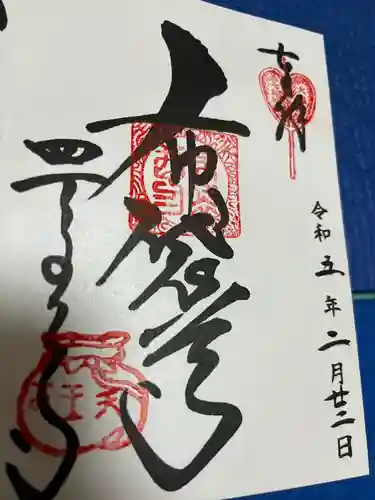 奉拝
令和五年二月廿二日
布袋尊
四天王寺